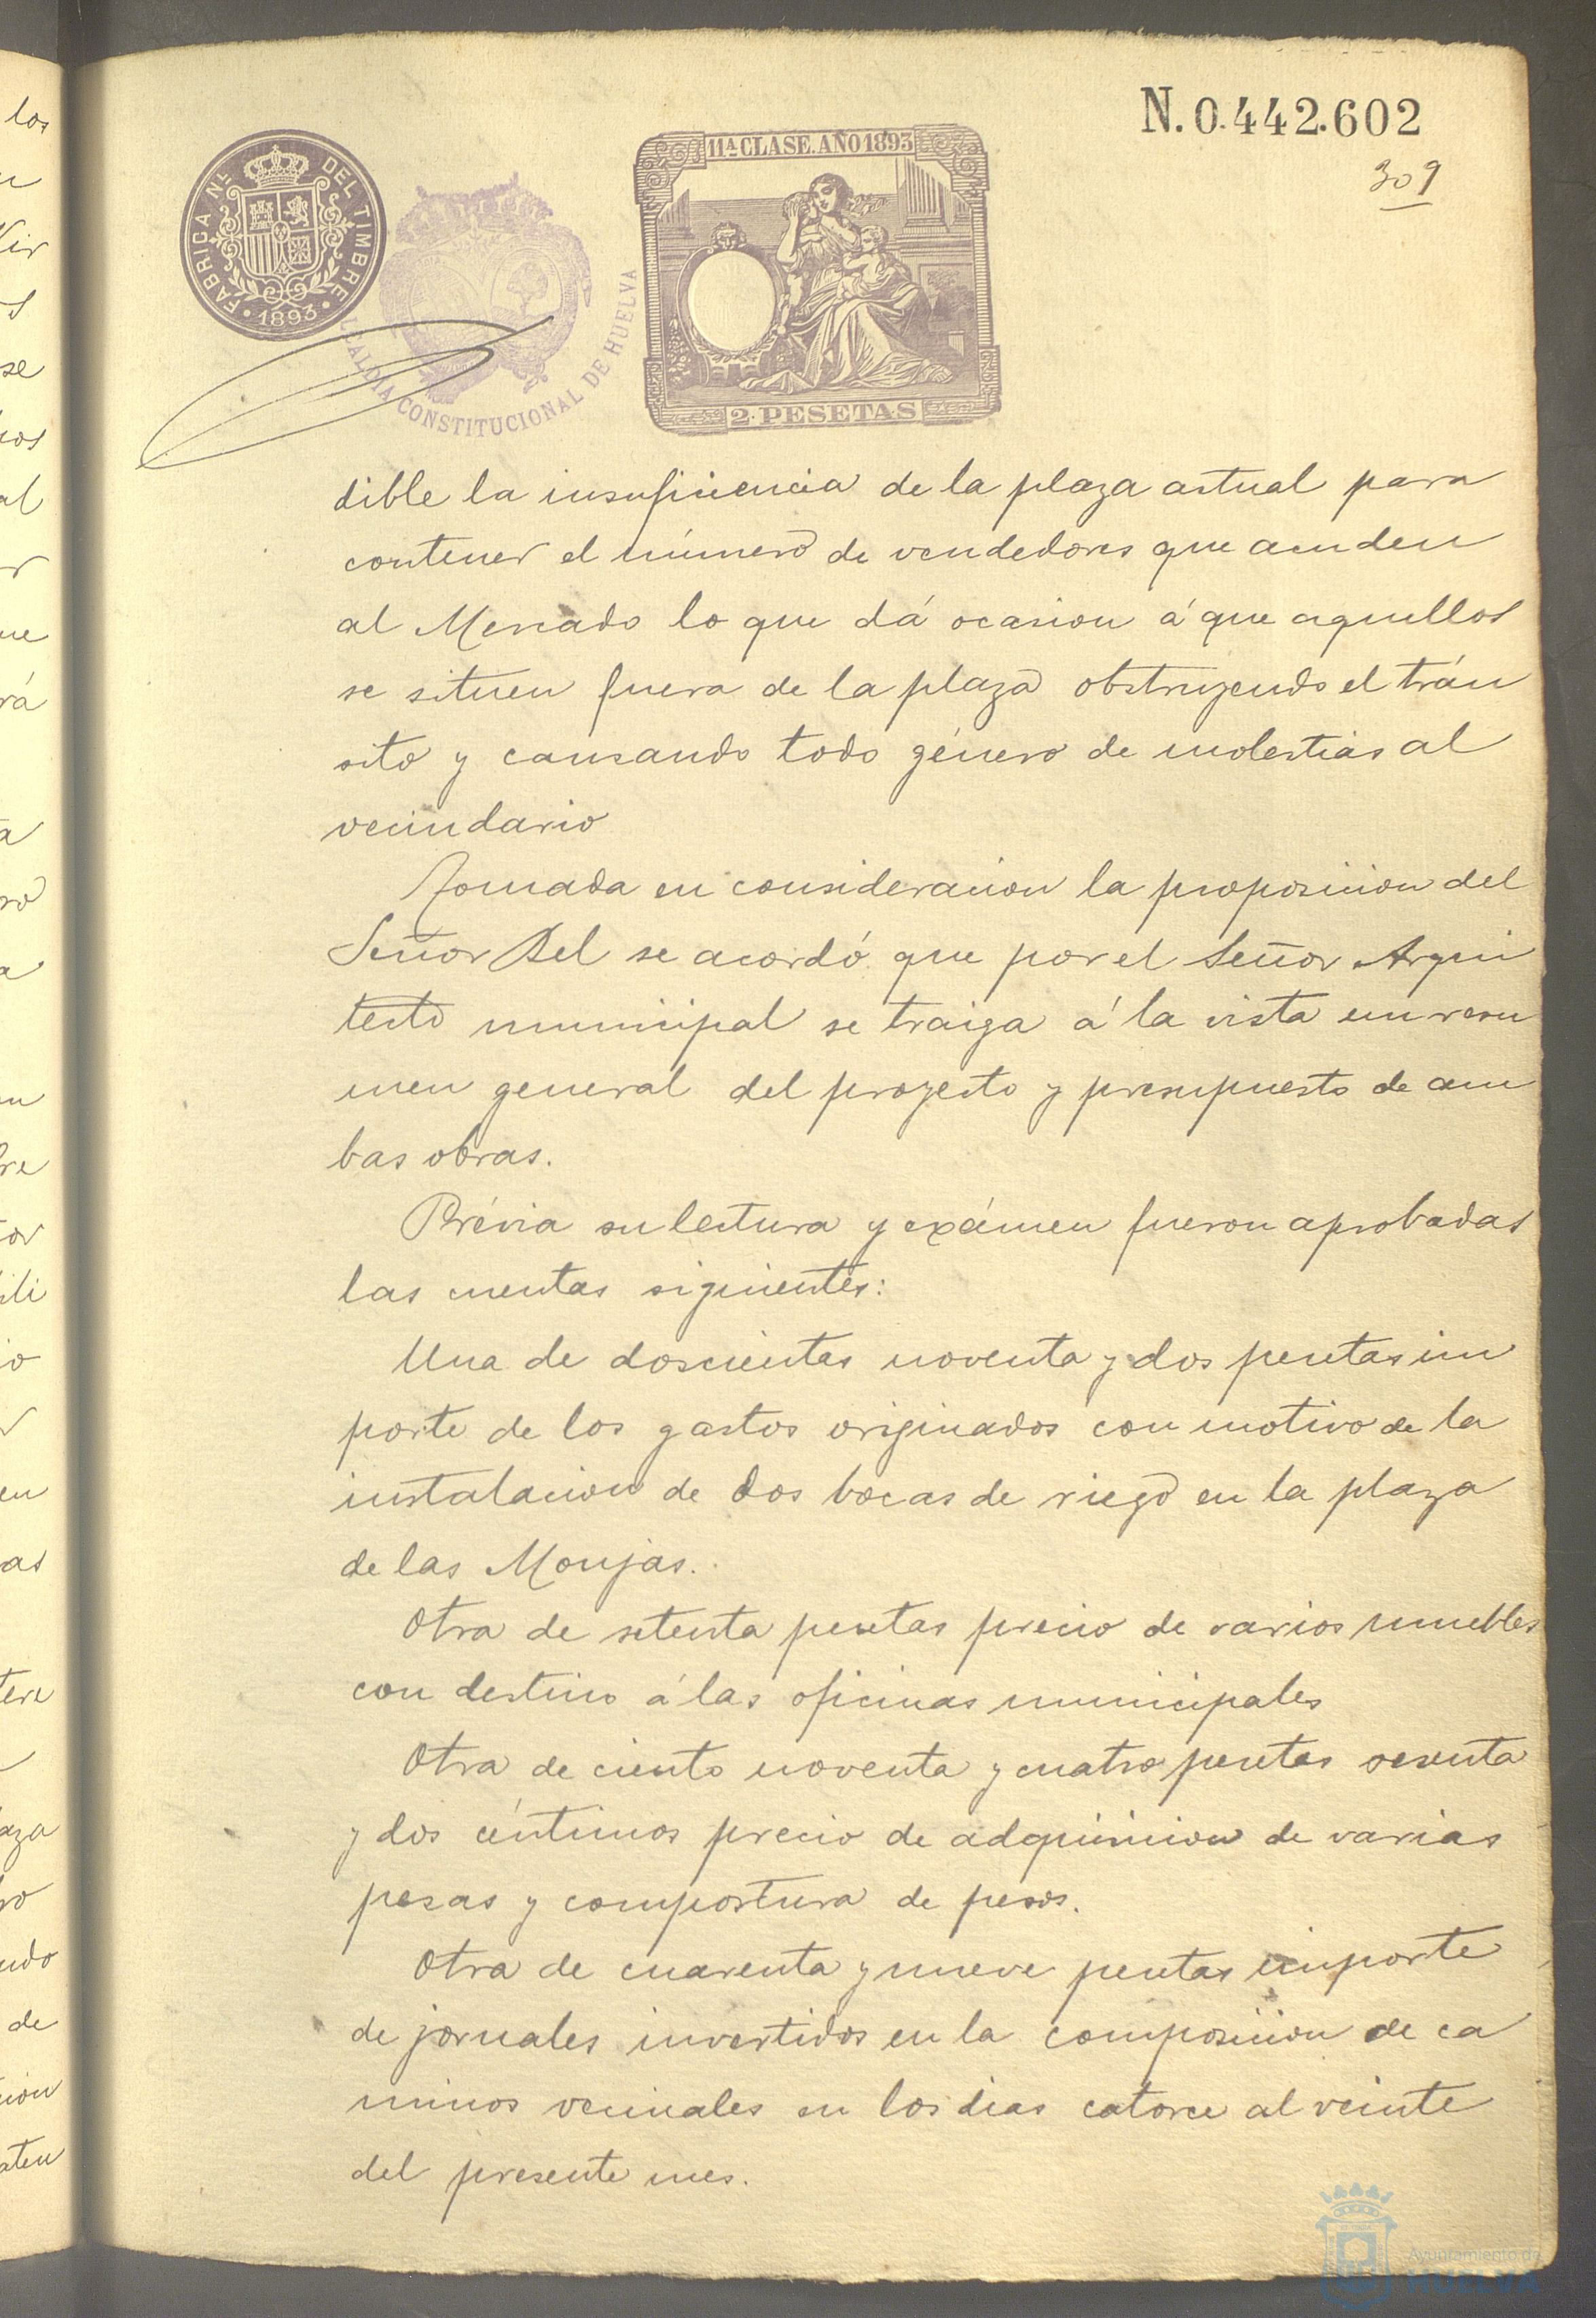 N. 0.442.602
309
11ª CLASE. AÑO 1893
FABRICA NL. DEL TIMBRE
1893
ALCALDIA CONSTITUCIONAL DE HUELVA
2 PESETAS
dible la insuficiencia de la plaza actual para
contener el número de vendedores que acuden
al Mercado lo que dá ocasion á que aquellos
se situen fuera de la plaza obstruyendo el trán
sito y causando todo género de molestias al
vecindario
Tomada en consideracion la proposicion del
Señor Bel se acordó que por el Señor Arqui
tecto municipal se traiga á la vista un resu
men general del proyecto y presupuesto de am
bas obras.
Prévia su lectura y exámen fueron aprobadas
las cuentas siguientes:
Una de doscientas noventa y dos pesetas im
porte de los gastos originados con motivo de la
instalacion de dos bocas de riego en la plaza
de las Monjas.
Otra de setenta pesetas precio de varios muebles
con destino á las oficinas municipales
Otra de ciento noventa y cuatro pesetas sesenta
y dos céntimos precio de adquisicion de varias
pesas y compostura de pesos.
Otra de cuarenta y nueve pesetas importe
de jornales invertidos en la composicion de ca
minos vecinales en los dias catorce al veinte
del presente mes.
Ayuntamiento de
HUELVA